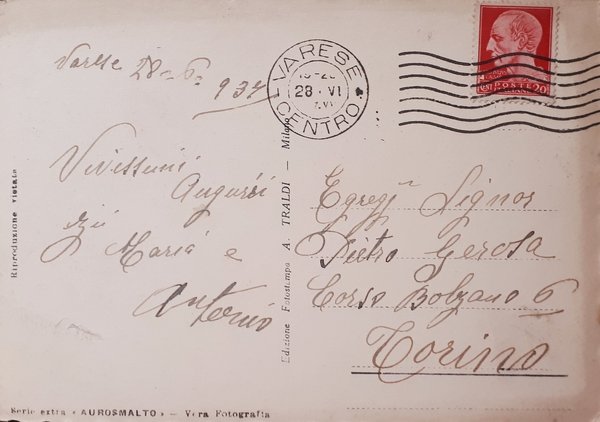 Varese 28-6-937
Vivissimi
Auguri
Zii
Maria e
Antonio
VARESE
CENTRO
28 · VI
POSTE
CENT 20
Egregi Signor
Pietro Gerosa
Corso Bolzano 6
Torino
Riproduzione vietata
Edizione Fotostampa A. TRALDI — Milano
Serie extra « AUROSMALTO » — Vera Fotografia